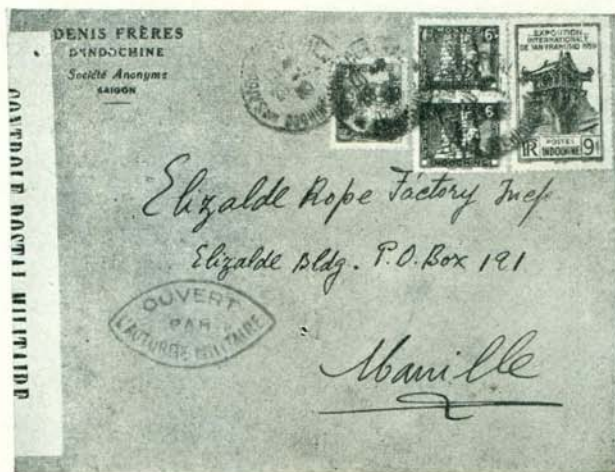 DENIS FRÈRES
D'INDOCHINE
Société Anonyme
SAIGON
CONTROLE POSTAL MILITAIRE
6
6
EXPOSITION
INTERNATIONALE
DE SAN FRANCISCO 1939
POSTES
RF INDOCHINE 9c
Elizalde Rope Factory Incp
Elizalde Bldg. P.O. Box 191
Manille
OUVERT
PAR
L'AUTORITÉ MILITAIRE